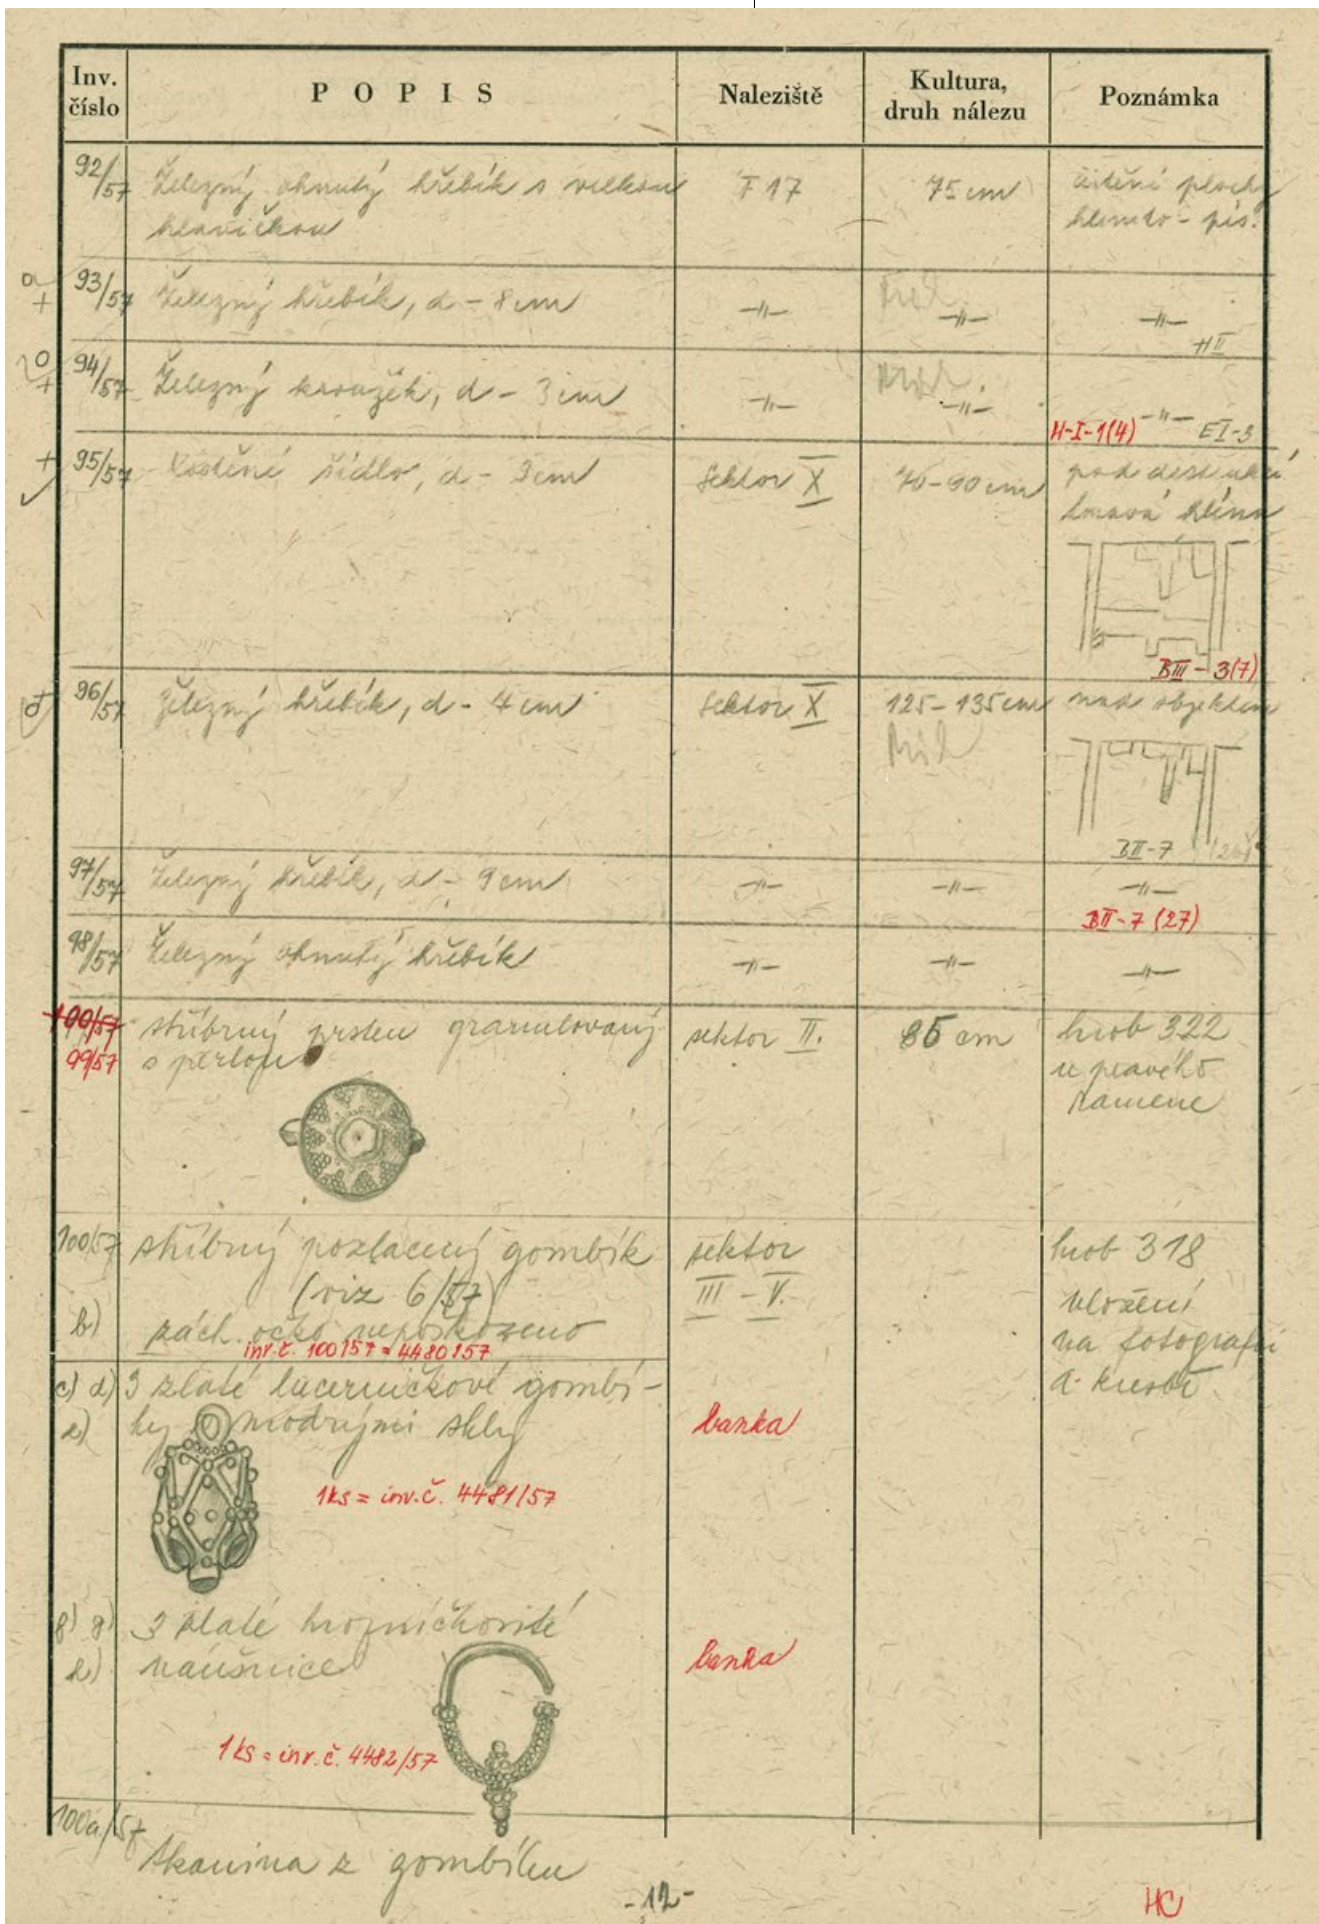 Inv. číslo
POPIS
Naleziště
Kultura, druh nálezu
Poznámka
92/57
Železný ohnutý hřebík s velkou
hlavičkou
F 17
75 cm
čištění plochy
hlinito - pís.
93/57
Železný hřebík, d - 8 cm
-〃-
-〃-
-〃-
HII
94/57
Železný kroužek, d - 3 cm
-〃-
-〃-
-〃-
H-I-1(4)
EI-3
95/57
Kostěné šídlo, d - 9 cm
Sektor X
70-90 cm
pod destrukcí
tmavá hlína
BIII - 3(7)
96/57
Železný hřebík, d - 7 cm
Sektor X
125-135 cm
nad objektem
BII-7
97/57
Železný hřebík, d - 9 cm
-〃-
-〃-
-〃-
BII-7 (27)
98/57
Železný ohnutý hřebík
-〃-
-〃-
-〃-
100/57
99/57
stříbrný prsten granulovaný
s perlou
sektor II.
85 cm
hrob 322
u pravého
ramene
100/57
stříbrný pozlacený gombík
(viz 6/57)
b)
zách. očko nepoškozeno
inv.č. 100/57 = 4480/57
sektor
III - V.
hrob 318
uložení
na fotografii
a kresbě
c) d)
e)
3 zlaté lucerničkové gombí-
ky s modrými skly
banka
1ks = inv.č. 4481/57
f) g)
h)
3 zlaté hrozníčkovité
náušnice
banka
1ks = inv.č. 4482/57
100a/57
tkanina z gombíku
-12-
HC